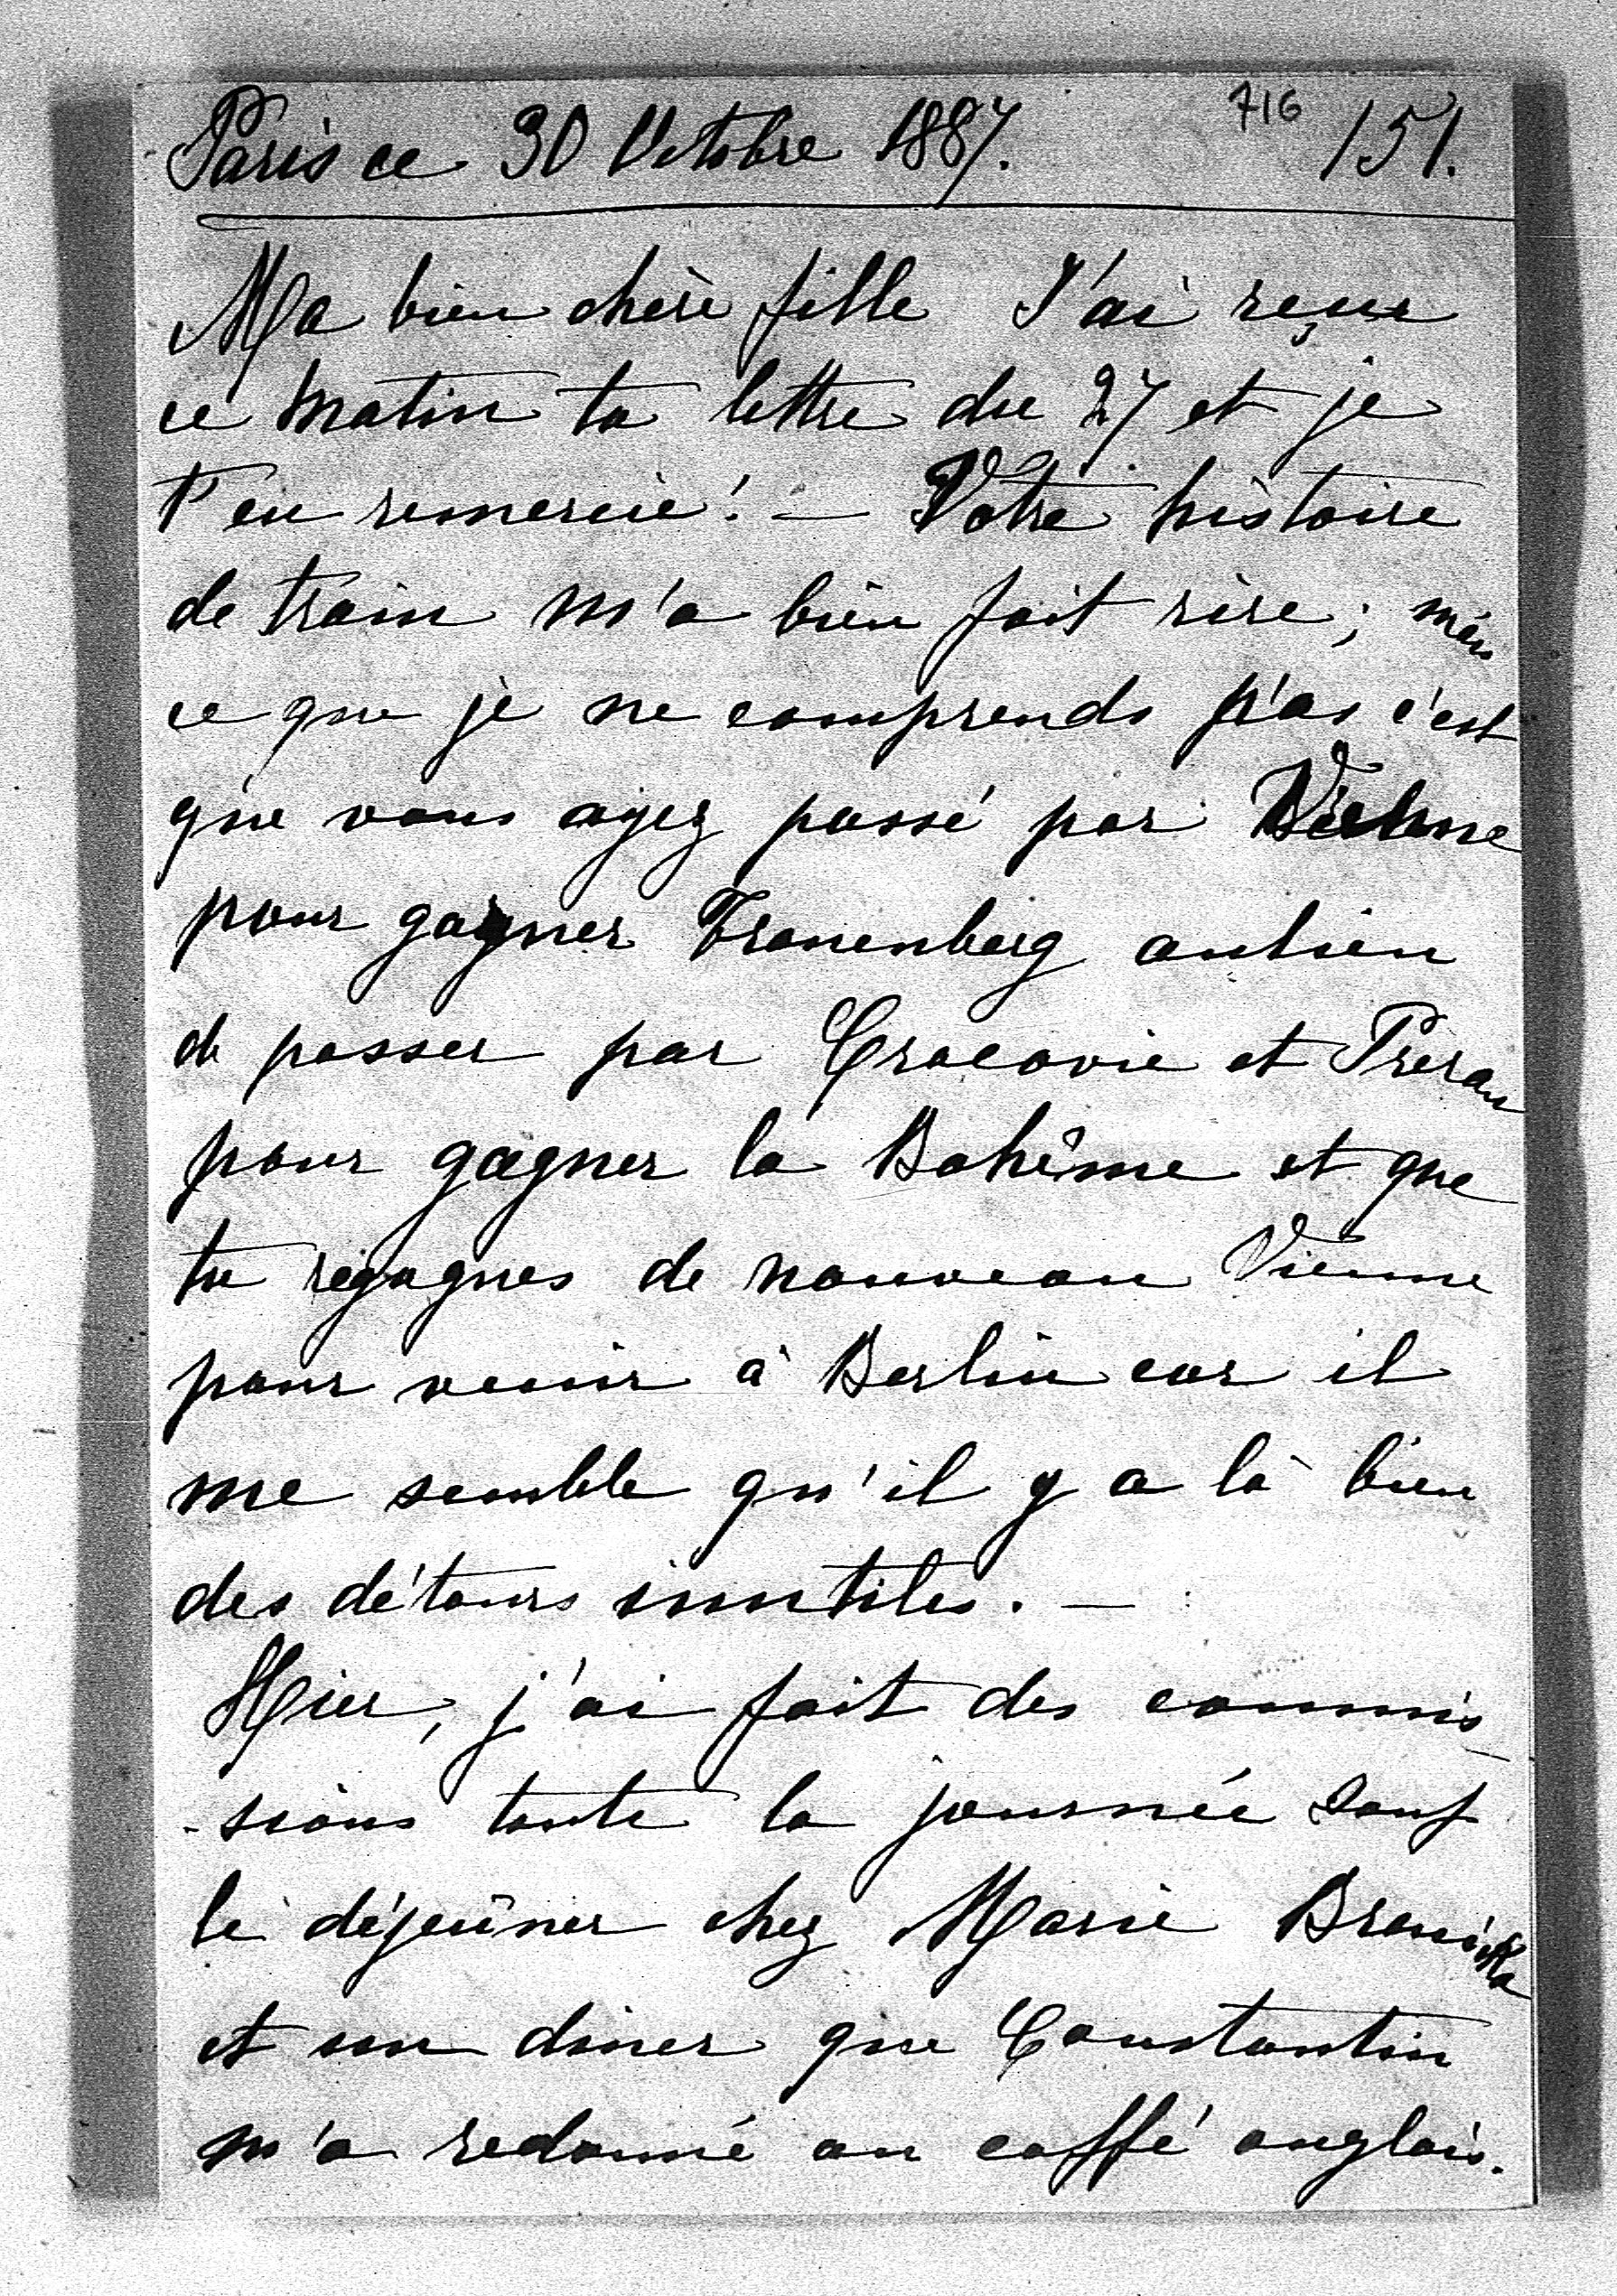 Paris ce 30 Octobre 1887. 716 151.
Ma bien chère fille J'ai reçue
ce matin ta lettre du 27 et je
t'en remercie! — Votre histoire
de train m'a bien fait rire; mais
ce que je ne comprends pas c'est
que vous ayez passé par Vienne
pour gagner Frauenberg aulieu
de passer par Cracovie et Prerau
pour gagner la Bohême et que
tu regagnes de nouveau Vienne
pour venir à Berlin car il
me semble qu'il y a là bien
des détours inutiles. —
Hier, j'ai fait des commis-
-sions toute la journée sauf
le déjeûner chez Marie Branicka
et un diner que Constantin
m'a redonné au caffé anglais.